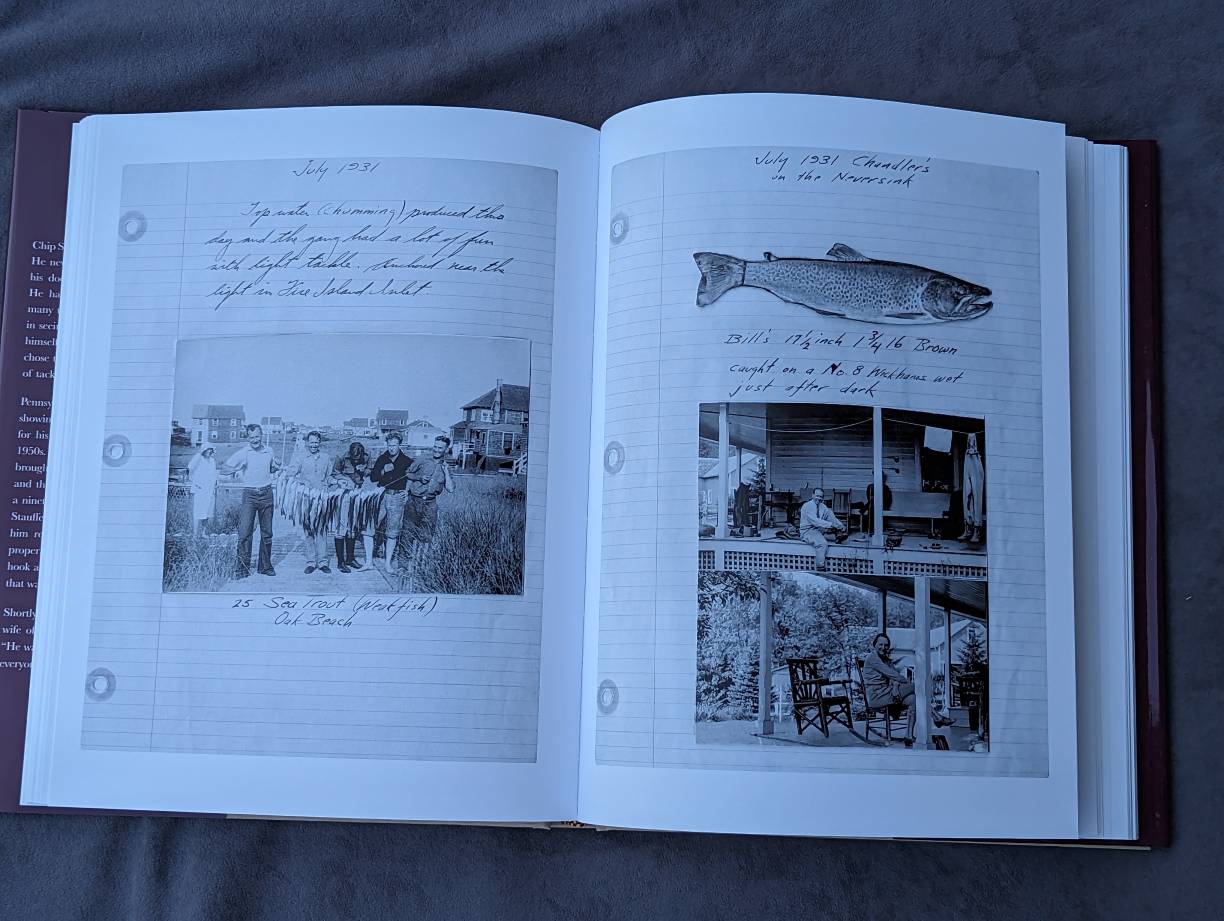 Chip S
He ne
his do
He ha
many
in seei
himsel
chose
of tack
Pennsy
showin
for his
1950s.
brough
and th
a nine
Stauffe
him re
proper
hook a
that wa
Shortly
wife of
"He wa
everyon
July 1931
Top water (chumming) produced this
day and the gang had a lot of fun
with light tackle. Anchored near the
light in Fire Island Inlet.
25 Sea Trout (Weakfish)
Oak Beach
July 1931 Chandler's
on the Neversink
Bill's 17 1/2 inch 1 3/4 lb Brown
caught on a No. 8 Wickhams wet
just after dark